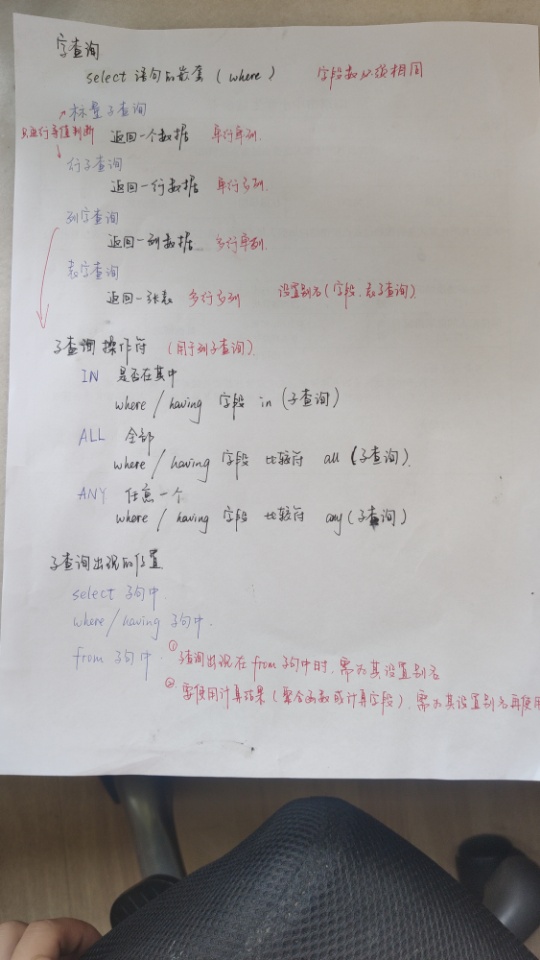 字查询
select 语句的嵌套 (where) 字段数必须相同
标量子查询
只进行等值判断 返回一个数据 单行单列.
行子查询
返回一行数据 单行多列.
列字查询
返回一列数据 多行单列.
表字查询
返回一张表 多行多列 设置别名(字段.表子查询)
子查询操作符 (用于列子查询).
IN 是否在其中
where / having 字段 in (子查询)
ALL 全部
where / having 字段 比较符 all (子查询).
ANY 任意一个
where / having 字段 比较符 any (子查询)
子查询出现的位置
select 子句中.
where/having 子句中.
from 子句中. ①子查询出现在from子句中时.需为其设置别名
②要使用计算结果(聚合函数或计算字段).需为其设置别名再使用